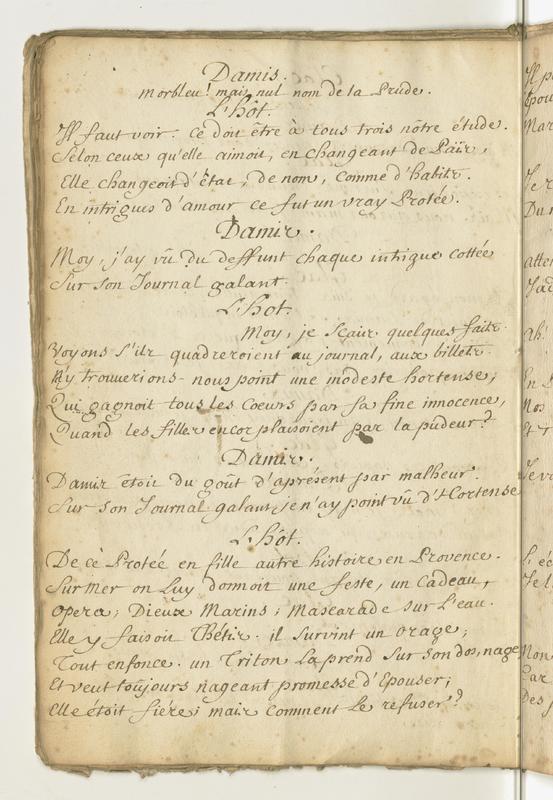 Damis.
Morbleu! mais nul nom de la Prude.
L'hôt.
Il faut voir. Ce doit être à tous trois nôtre étude.
Selon ceux qu'elle aimoit, en changeant de Païs,
Elle changeoit d'état, de nom, comme d'habits.
En intrigues d'amour ce fut un vray Protée.
Damis.
Moy, j'ay vû du deffunt chaque intrigue cottée
Sur son Journal galant.
L'hot.
Moy, je sçais quelques faits.
Voyons s'ils quadreroient au journal, aux billets
N'y trouverions-nous point une modeste hortense,
Qui gagnoit tous les Coeurs par sa fine innocence,
Quand les filles encor plaisoient par la pudeur?
Damis.
Damis étoit du goût d'aprésent par malheur.
Sur son Journal galant, je n'ay point vû d'Hortense
L'hôt.
De cè Protée en fille autre histoire en Provence.
Sur Mer on Luy donnoit une feste, un Cadeau,
Opera; Dieux Marins; Mascarade sur L'eau.
Elle y faisoit Thétis. il survint un orage;
Tout enfonce. un Triton La prend sur son dos, nage
Et veut toûjours nageant promesse d'Epouser;
Elle étoit fiére; mais Comment Le refuser?